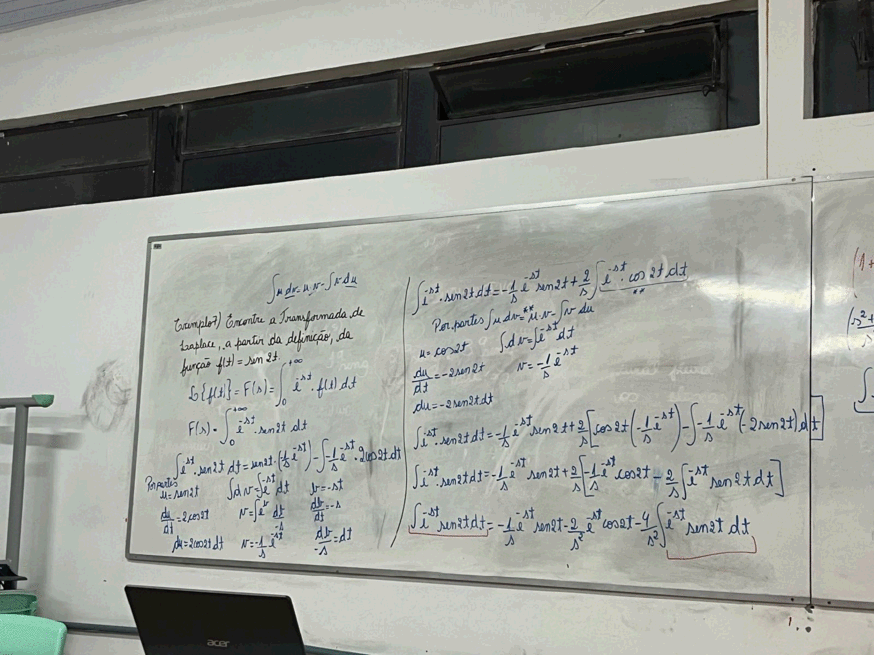 ∫u dv = u.v - ∫v du
Exemplo 7) Encontre a Transformada de
Laplace, a partir da definição, da
função f(t) = sen 2t.
L{f(t)} = F(s) = ∫₀^{+∞} e^{-st} . f(t) dt
F(s) = ∫₀^{+∞} e^{-st} . sen 2t dt
∫e^{-st} . sen 2t dt = sen 2t . (-1/s e^{-st}) - ∫-1/s e^{-st} . 2cos 2t dt
Por partes
u = sen 2t ∫dv = ∫e^{-st} dt b = -st
du/dt = 2cos 2t v = ∫e^b db/-s db/dt = -s
du = 2cos 2t dt v = -1/s e^{-st} db/-s = dt
∫e^{-st} . sen 2t dt = -1/s e^{-st} sen 2t + 2/s ∫e^{-st} . cos 2t dt
**
Por partes ∫u dv =** u.v - ∫v du
u = cos 2t ∫dv = ∫e^{-st} dt
du/dt = -2sen 2t v = -1/s e^{-st}
du = -2sen 2t dt
∫e^{-st} . sen 2t dt = -1/s e^{-st} sen 2t + 2/s [cos 2t (-1/s e^{-st}) - ∫-1/s e^{-st} (-2sen 2t) dt]
∫e^{-st} . sen 2t dt = -1/s e^{-st} sen 2t + 2/s [-1/s e^{-st} cos 2t - 2/s ∫e^{-st} sen 2t dt]
∫e^{-st} sen 2t dt = -1/s e^{-st} sen 2t - 2/s² e^{-st} cos 2t - 4/s² ∫e^{-st} sen 2t dt
(1+
(s²+
s²
∫
acer